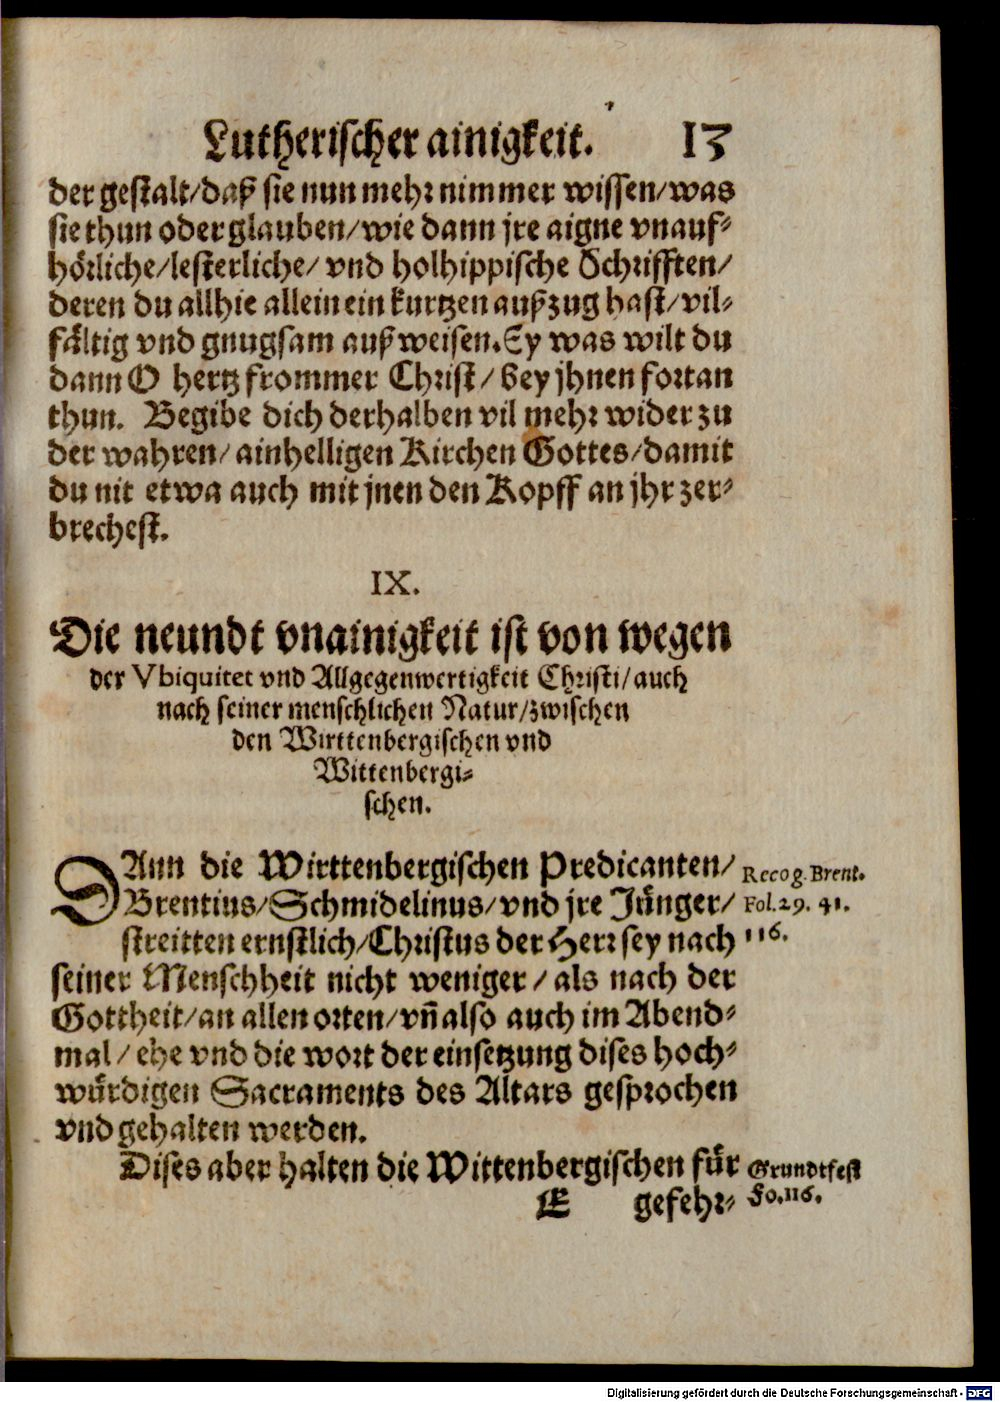 Lutherischer ainigkeit. 13
der gestalt/daß sie nun mehr nimmer wissen/was
sie thun oder glauben/wie dann jre aigne vnauf-
hörliche/lesterliche/ vnd holhippische Schrifften/
deren du allhie allein ein kurtzen außzug hast/vil-
fältig vnd gnugsam außweisen. Ey was wilt du
dann O hertz frommer Christ/ bey jhnen fortan
thun. Begibe dich derhalben vil mehr wider zu
der wahren/ ainhelligen Kirchen Gottes/damit
du nit etwa auch mit jnen den Kopff an jhr zer-
brechest.
IX.
Die neundt vnainigkeit ist von wegen
der Vbiquitet vnd Allgegenwertigkeit Christi/auch
nach seiner menschlichen Natur/zwischen
den Wirttenbergischen vnd
Wittenbergi-
schen.
DAnn die Wirttenbergischen Predicanten/
Brentius/Schmidelinus/vnd jre Jünger/
streitten ernstlich/Christus der Herr sey nach
seiner Menschheit nicht weniger/ als nach der
Gottheit/an allen orten/vñ also auch im Abend-
mal/ ehe vnd die wort der einsetzung dises hoch-
würdigen Sacraments des Altars gesprochen
vnd gehalten werden.
Recog. Brent.
Fol. 29. 41.
116.
Dises aber halten die Wittenbergischen für
Grundtfest
Fo. 116.
E gefehr-
Digitalisierung gefördert durch die Deutsche Forschungsgemeinschaft - DFG